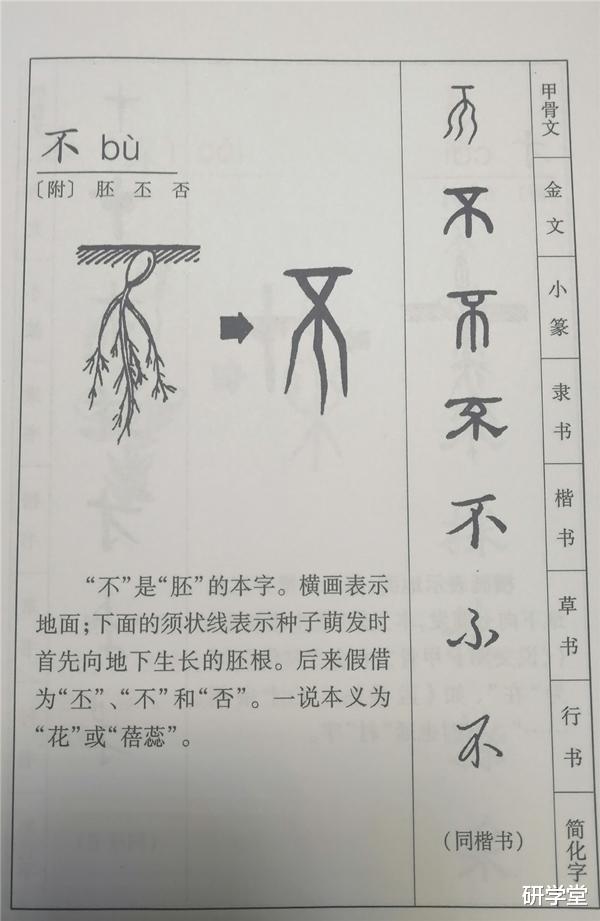 不 bù
〔附〕 胚 丕 否
“不”是“胚”的本字。横画表示
地面;下面的须状线表示种子萌发时
首先向地下生长的胚根。后来假借
为“丕”、“不”和“否”。一说本义为
“花”或“蓓蕊”。
不 甲骨文
不 金文
不 小篆
不 隶书
不 楷书
不 草书
不 行书
(同楷书) 简化字
研学堂